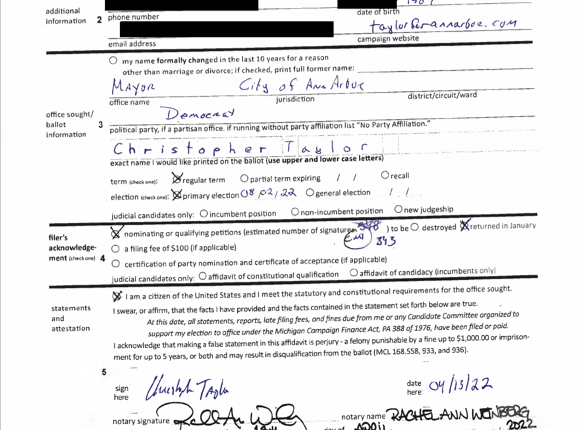 additional
information 2
phone number
date of birth
taylorforannarbor.com
email address
campaign website
my name formally changed in the last 10 years for a reason
other than marriage or divorce; if checked, print full former name:
Mayor City of Ann Arbor
office name jurisdiction district/circuit/ward
office sought/
ballot
information 3
Democrat
political party, if a partisan office. If running without party affiliation list "No Party Affiliation."
Christopher Taylor
exact name I would like printed on the ballot (use upper and lower case letters)
term (check one): regular term partial term expiring / / recall
election (check one): primary election 08/02/22 general election / /
judicial candidates only: incumbent position non-incumbent position new judgeship
filer's
acknowledge-
ment (check one) 4
nominating or qualifying petitions (estimated number of signatures ) to be destroyed returned in January
343
a filing fee of $100 (if applicable)
certification of party nomination and certificate of acceptance (if applicable)
judicial candidates only: affidavit of constitutional qualification affidavit of candidacy (incumbents only)
statements
and
attestation
I am a citizen of the United States and I meet the statutory and constitutional requirements for the office sought.
I swear, or affirm, that the facts I have provided and the facts contained in the statement set forth below are true.
At this date, all statements, reports, late filing fees, and fines due from me or any Candidate Committee organized to
support my election to office under the Michigan Campaign Finance Act, PA 388 of 1976, have been filed or paid.
I acknowledge that making a false statement in this affidavit is perjury - a felony punishable by a fine up to $1,000.00 or imprison-
ment for up to 5 years, or both and may result in disqualification from the ballot (MCL 168.558, 933, and 936).
5
sign
here
date
here 04/13/22
notary signature
notary name RACHEL ANN WEINBERG
2022